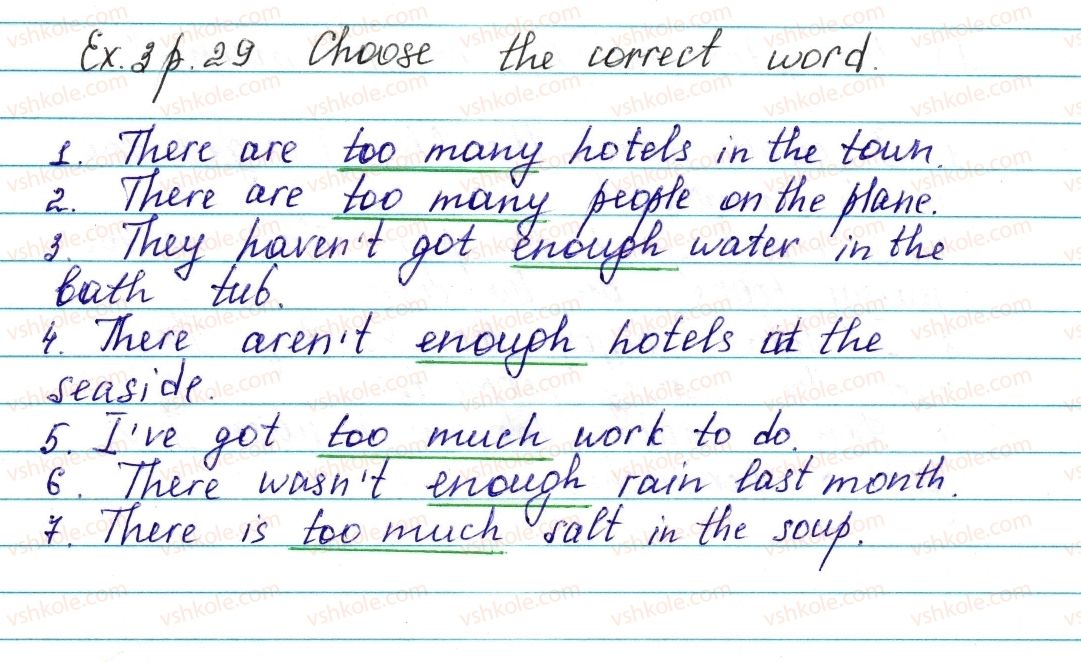 Ex. 3 p. 29 Choose the correct word.
1. There are too many hotels in the town.
2. There are too many people on the plane.
3. They haven't got enough water in the
bath tub.
4. There aren't enough hotels at the
seaside.
5. I've got too much work to do.
6. There wasn't enough rain last month.
7. There is too much salt in the soup.
vshkole.com